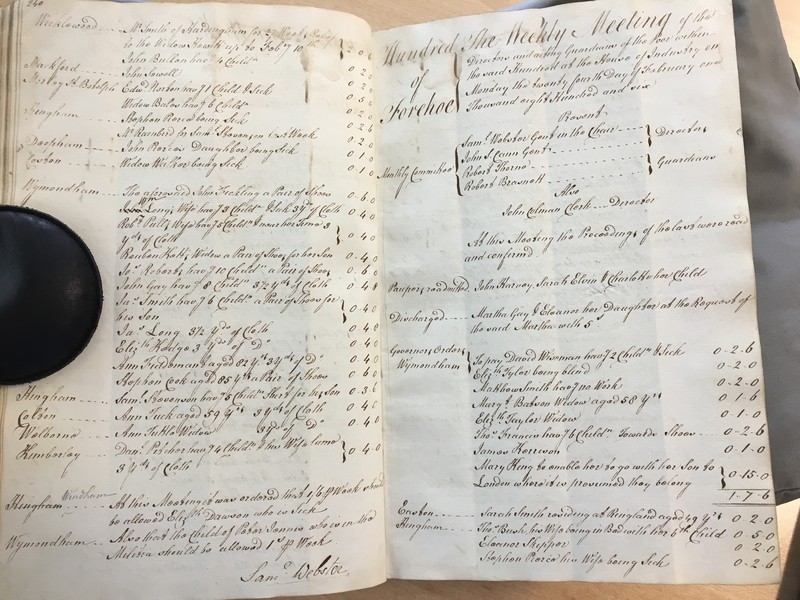 240
Wicklewood Mr. Smith of Hardingham for 2 Weeks
to the Widow Howith up to Feby 10th
John Bullon hav'g 4 Childn
Mackford John Sowell 0 2 0
Morley St Botolph Edwd Horton hav'g 1 Child & Sick 0 2 0
Widow Bales hav'g 6 Childn 0 5 0
Hingham Stephen Pearce being Sick 0 2 0
Mr Rarebird for Saml Stevenson 6 & 7 Week 0 2 6
Deopham John Pearces Daughter being Sick 0 2 0
Easton Widow Walker being Sick 0 1 0
Wymondham The aforesaid John Tickling a Pair of Shoes 0 6 0
Wm Long's Wife hav'g 3 Childn & Sick 3 yds of Cloth 0 4 0
Robt Pulls Wife hav'g 5 Childn & near her Time 3
yds of Cloth } 0 4 0
Reuben Kett's Widow a Pair of Shoes for her Son 0 4 0
Jas Roberts hav'g 10 Childn a Pair of Shoes 0 6 0
John Gay hav'g 8 Childn 3 1/2 yds of Cloth 0 4 8
Jas Smith hav'g 6 Childn a Pair of Shoes for
his Son } 0 4 0
Jas Long 3 1/2 yds of Cloth 0 4 8
Elizth Hodge 3 yds of Do 0 4 0
Ann Tiddeman aged 82 yrs 3 yds of Do 0 4 0
Stephen Cook aged 85 yrs a Pair of Shoes 0 6 0
Hingham Saml Stevenson hav'g 5 Childn Shirt for his Son 0 3 6
Colton Ann Tuck aged 59 yrs 3 yds of Cloth 0 4 0
Welborne Ann Tuttle Widow 3 yds of Do 0 4 0
Kimberley Danl Pitcher hav'g 4 Childn & his Wife lame
3 yds of Cloth } 0 4 0
Hingham At this Meeting it was ordered that 1/6 p Week should
be allowed Elizth Dawson who is Sick
Wymondham Also that the Child of Peter Jonnis who is in the
Militia should be allowed 1s p Week
Saml Webster
Hundred
of
Forehoe
The Weekly Meeting of the
Directors and acting Guardians of the Poor within
the said Hundred at the House of Industry on
Monday the twenty fourth Day of February one
Thousand eight Hundred and six
Present
Monthly Committee
Saml Webster Gent in the Chair
John S Cann Gent } Directors
Robert Thorne
Robert Brasnett } Guardians
Also
John Colman Clerk Director
At this Meeting the Proceedings of the last were read
and confirmed
Paupers readmitted John Harvey, Sarah Elvin & Charlotte her Child
Discharged Martha Gay & Eleanor her Daughter at the Request of
the said Martha with 5s
Governors Orders
Wymondham Jopsay David Wisman hav'g 2 Childn & Sick 0-2-6
Elizth Tylor being blind 0-2-0
Matthew Smith hav'g no Work 0-2-0
Mary Batson Widow aged 58 yrs 0-1-6
Elizth Taylor Widow 0-1-0
Thos Francis hav'g 6 Childn Towards Shoes 0-2-6
James Harrison 0-1-0
Mary King to enable her to go with her Son to
London where it is presumed they belong } 0-15-0
1-7-6
Easton Sarah Smith residing at Ringland aged 49 yrs 0 2 0
Hingham Thos Bush, his Wife being in Bed with her 5th Child 0 5 0
Eleanor Skipper 0 2 0
Stephen Pearce his Wife being Sick 0-2-6